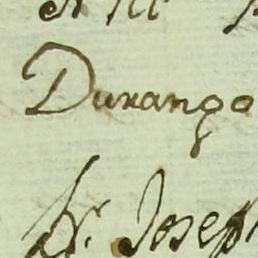 Durango
Fr. Joseph